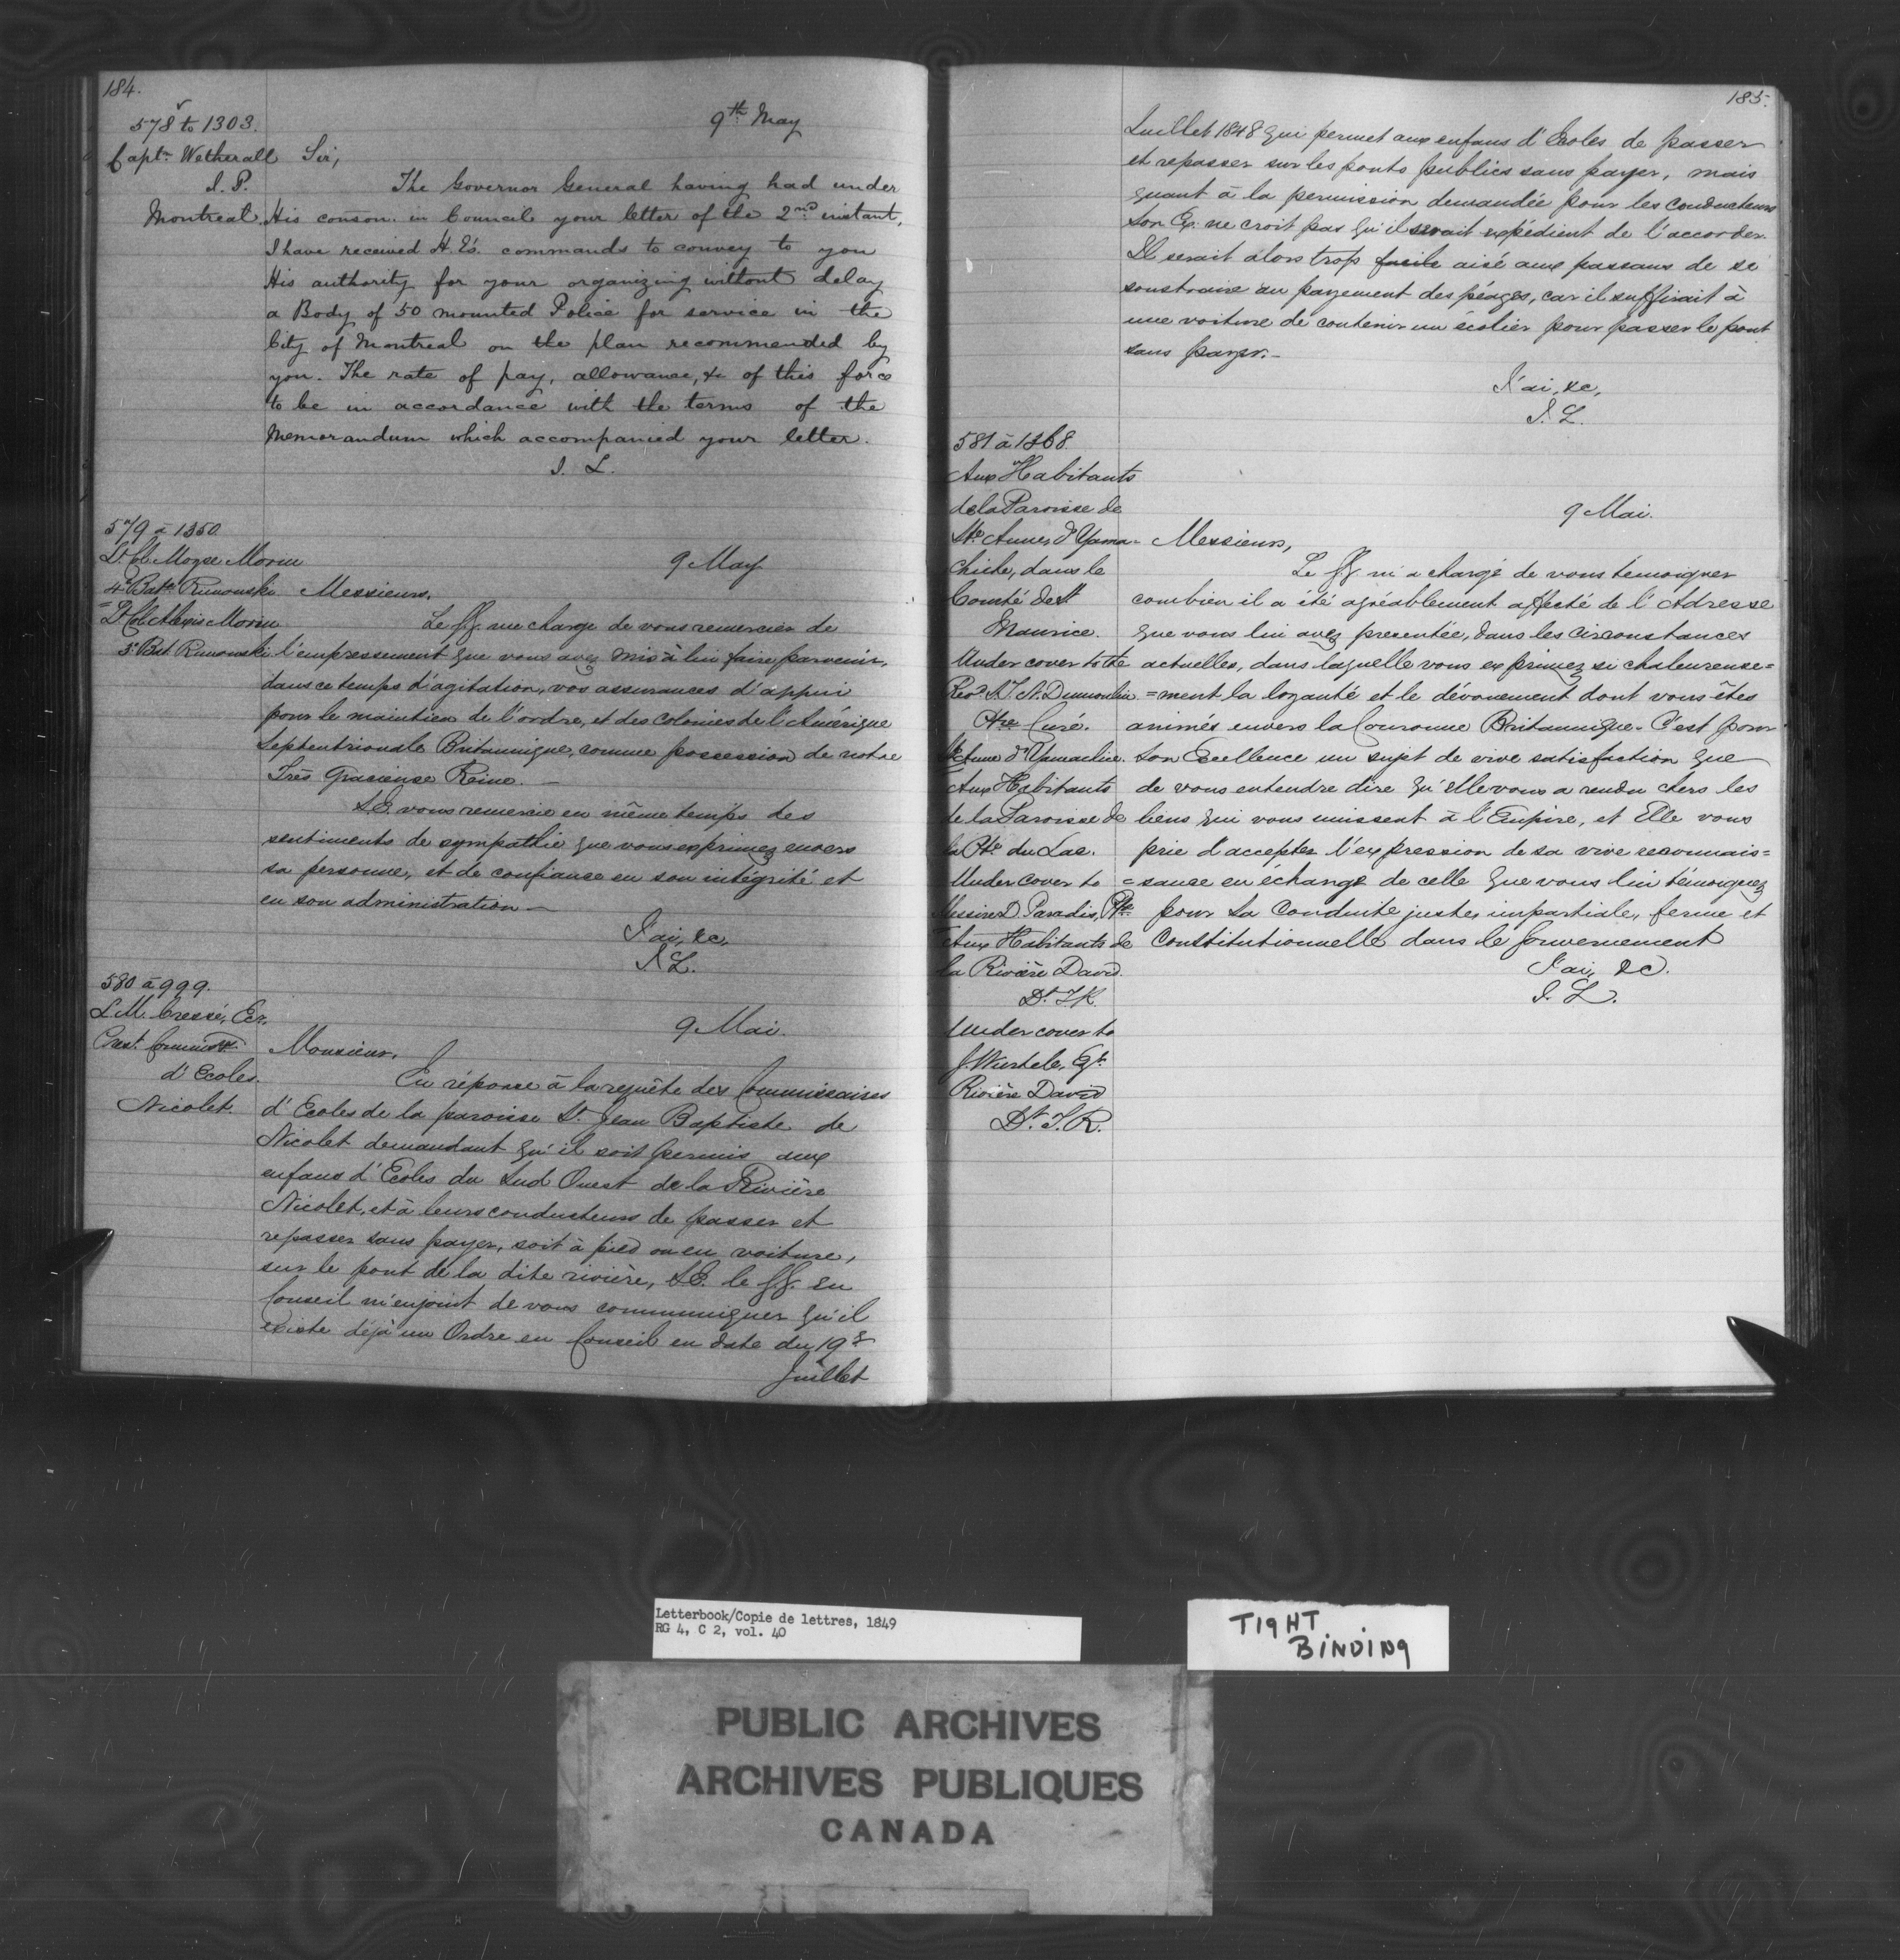 184.
578 to 1303.
9th May
Captn Wetherall
I. P.
Montreal
Sir,
The Governor General having had under
His conson. in Council your letter of the 2nd instant,
I have received H. E's. commands to convey to you
His authority for your organizing without delay
a Body of 50 mounted Police for service in the
City of Montreal on the plan recommended by
you. The rate of pay, allowance, &c of this force
to be in accordance with the terms of the
Memorandum which accompanied your letter.
J. L.
579 à 1350.
Lt Cl. Moyse Morin
4e Batn Rimouski
Lt Col. Alexis Morin
3e Bat Rimouski
9 May
Messieurs,
Le GG me charge de vous remercier de
l'empressement que vous avez mis à lui faire parvenir,
dans ce temps d'agitation, vos assurances d'appui
pour le maintien de l'ordre, et des Colonies de l'Amérique
Septentrionale Britannique, comme possession de notre
Très Gracieuse Reine. —
S.E. vous remercie en même temps des
sentiments de sympathie que vous exprimez envers
sa personne, et de confiance en son intégrité et
en son administration —
J'ai, &c,
J. L.
580 à 999.
L. M. Cressé, Ecr,
Prest. Commissres
d'Ecoles.
Nicolet.
9 Mai.
Monsieur,
En réponse à la requête des Commissaires
d'Ecoles de la paroisse St. Jean Baptiste de
Nicolet demandant qu'il soit permis aux
enfans d'Ecoles du Sud Ouest de la Rivière
Nicolet, et à leurs conducteurs de passer et
repasser sans payer, soit à pied ou en voiture,
sur le pont de la dite rivière, S.E. le GG. en
Conseil m'enjoint de vous communiquer qu'il
existe déjà un Ordre en Conseil en date du 19e
Juillet
185.
Juillet 1848 qui permet aux enfans d'Ecoles de passer
et repasser sur les ponts publics sans payer, mais
quant à la permission demandée pour les conducteurs
Son Ex: ne croit pas qu'il serait expédient de l'accorder.
Il serait alors trop facile aisé aux passans de se
soustraire au payement des péages, car il suffirait à
une voiture de contenir un écolier pour passer le pont
sans payer. —
J'ai, &c,
J. L.
581 à 1368.
Aux Habitants
de la Paroisse de
Ste Anne d'Yama-
chiche, dans le
Comté de St
Maurice.
Under cover to the
Revd S. N. Dumoulin
Ptre Curé.
Ste Anne d'Yamachiche.
Aux Habitants
de la Paroisse de
la Pte du Lac.
Under cover to
Messire D. Paradis, Ptre
Aux Habitants de
la Rivière David.
Under cover to
J. Wurtele, Eqr
Rivière David
9 Mai.
Messieurs,
Le GG m'a chargé de vous témoigner
combien il a été agréablement affecté de l'Adresse
que vous lui avez presentée, dans les circonstances
actuelles, dans laquelle vous exprimez si chaleureuse=
=ment la loyauté et le dévouement dont vous êtes
animés envers la Couronne Britannique. C'est pour
Son Excellence un sujet de vive satisfaction que
de vous entendre dire qu'elle vous a rendu chers les
liens qui vous unissent à l'Empire, et Elle vous
prie d'accepter l'expression de sa vive reconnais=
=sance en échange de celle que vous lui témoignez
pour sa Conduite juste, impartiale, ferme et
Constitutionnelle dans le Gouvernement
J'ai, &c.
J. L.
Letterbook/Copie de lettres, 1849
RG 4, C 2, vol. 40
TIGHT
BINDING
PUBLIC ARCHIVES
ARCHIVES PUBLIQUES
CANADA